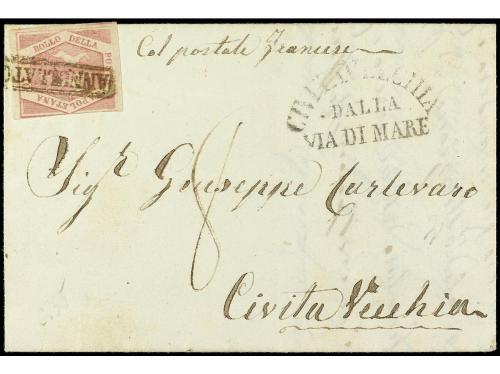 BOLLO DELLA
POSTA NAPOLETANA
ANNULLATO
Col postale francese
CIVITAVECCHIA
DALLA
VIA DI MARE
Sigr Giuseppe Carlevaro
8
Civita Vecchia